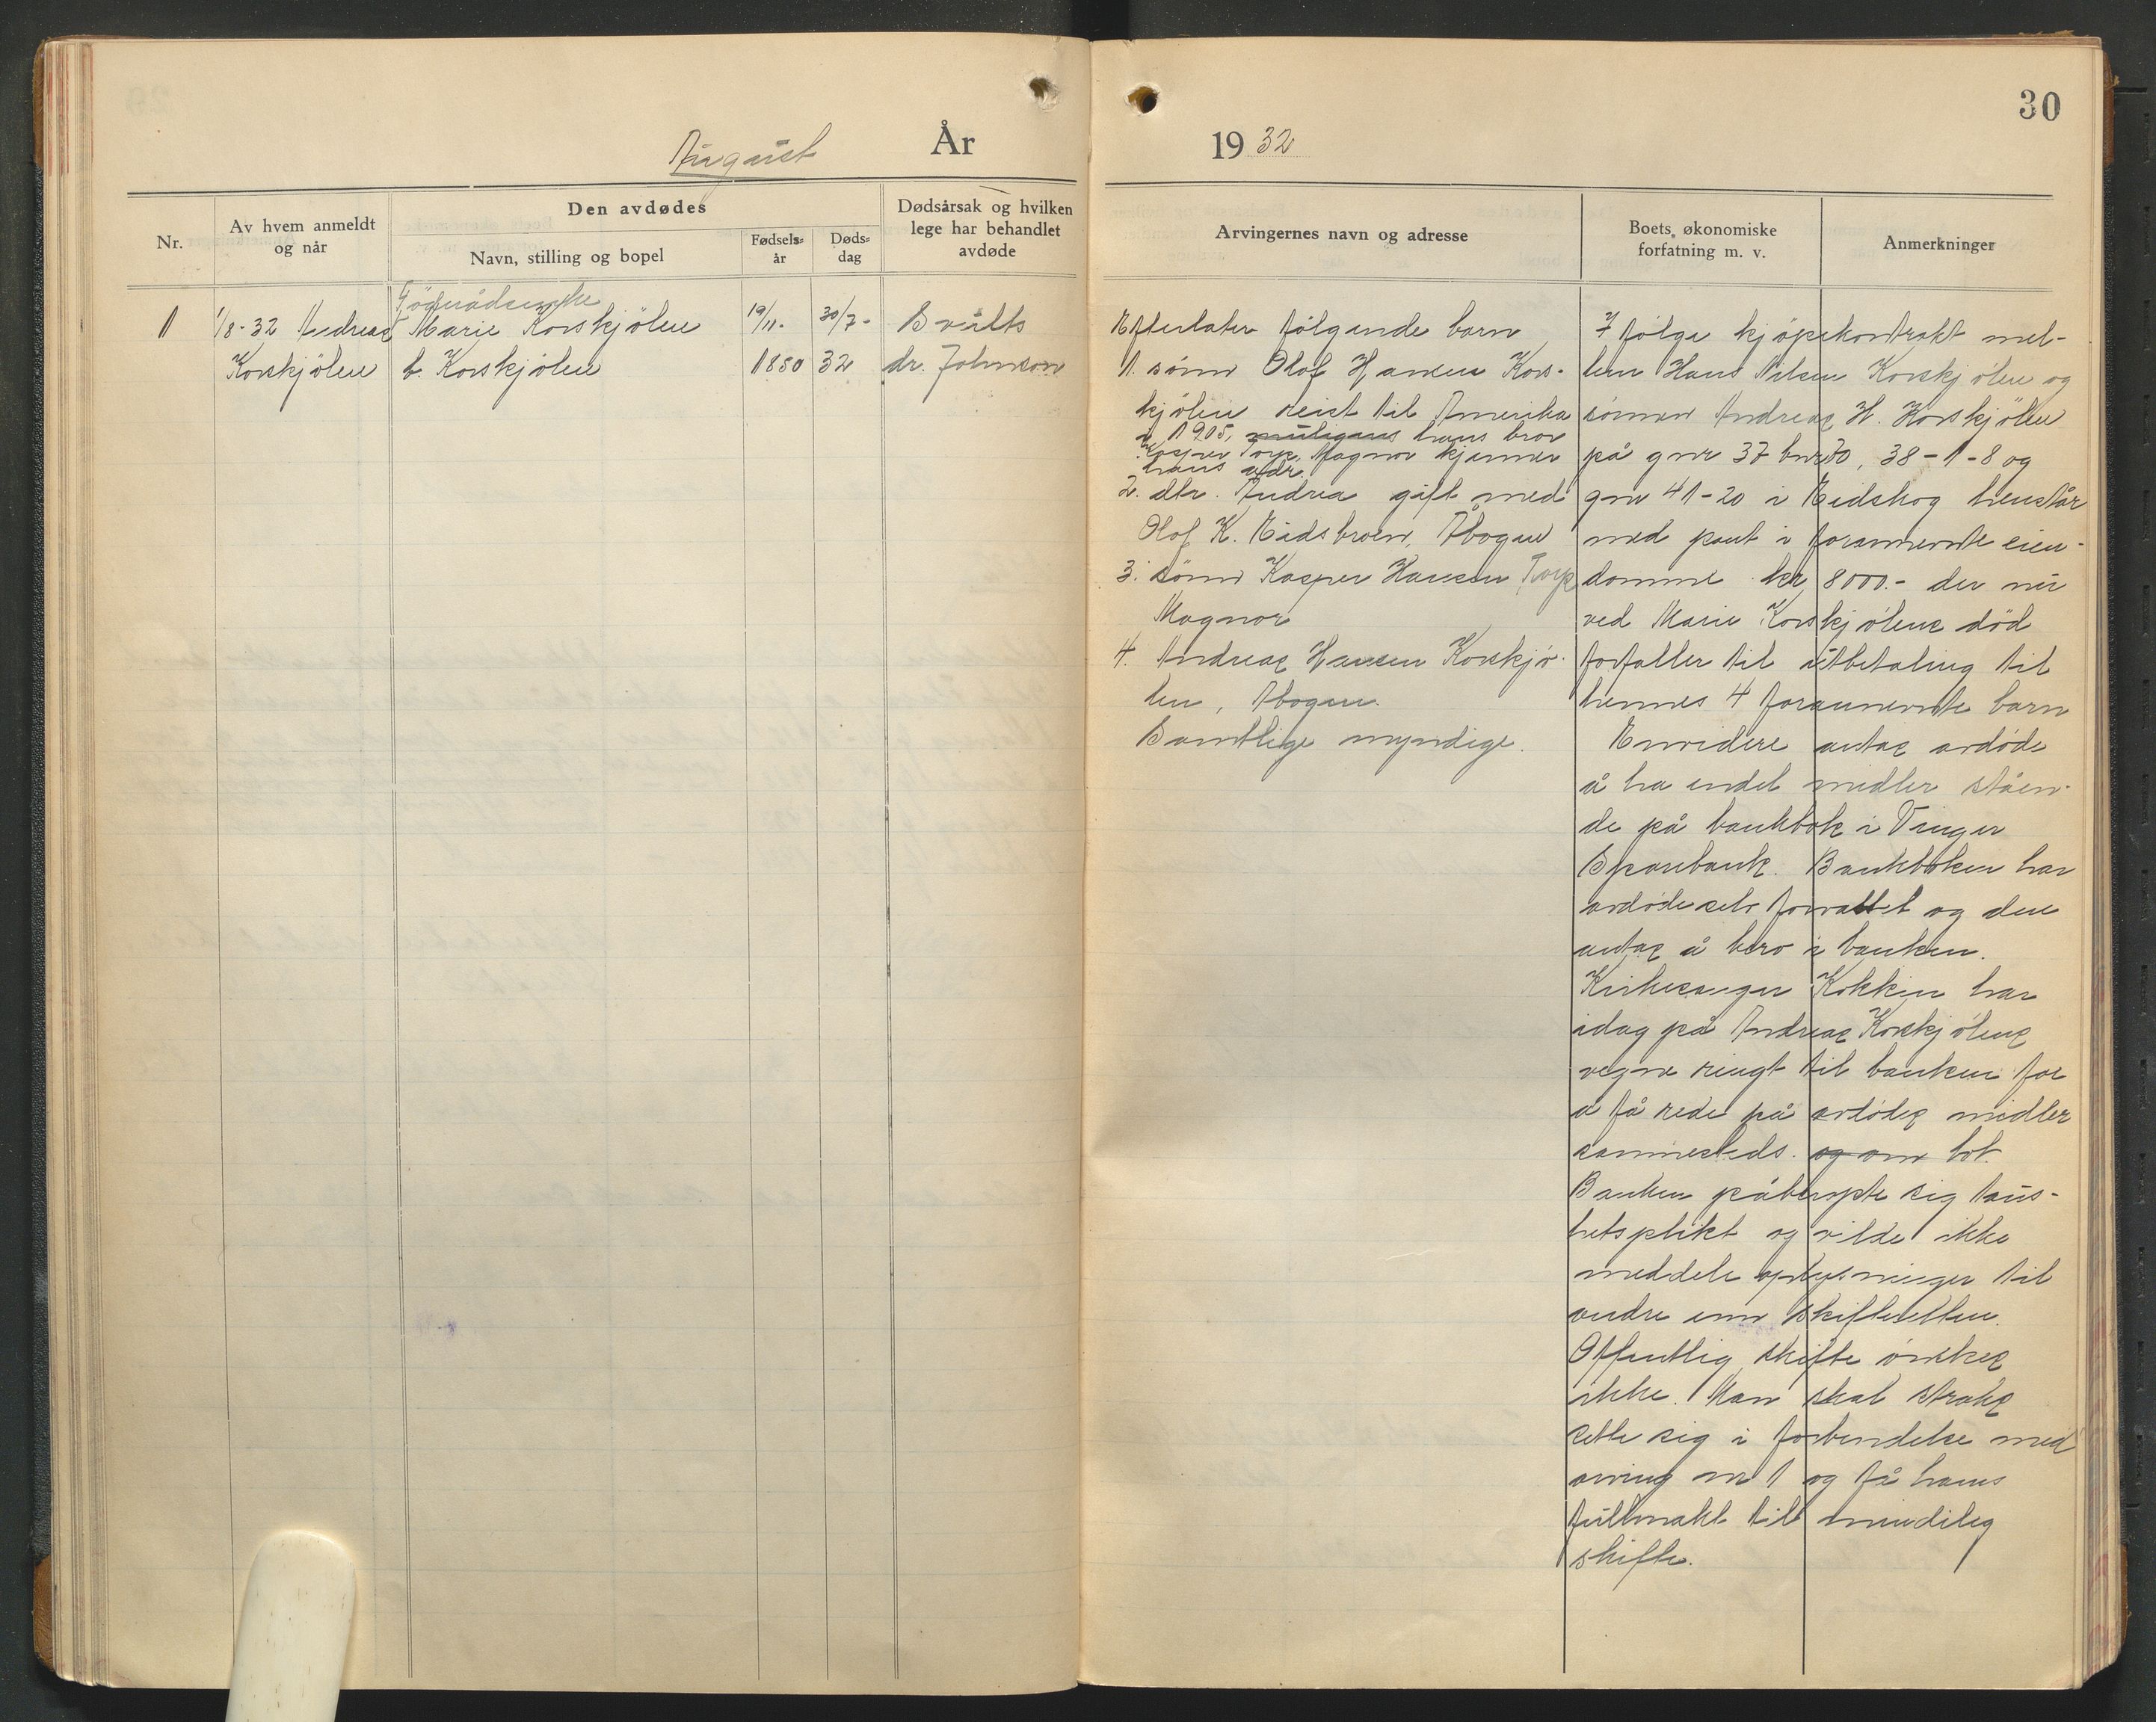 30
August År 1932
Nr.
Av hvem anmeldt
og når
Den avdødes
Navn, stilling og bopel
Fødsels-
år
Døds-
dag
Dødsårsak og hvilken
lege har behandlet
avdøde
Arvingernes navn og adresse
Boets økonomiske
forfatning m. v.
Anmerkninger
1
1/8-32 Andreas
Korskjølen
Føderådsenke
Marie Korskjølen
b. Korskjølen
19/11-
1850
30/7-
32
Svulst
dr. Johnson
Efterlater følgende barn
1. sønn Olof Hansen Kors-
kjølen reist til Amerika
i 1905, muligens hans bror
Kasper Torp, Magnor kjenner
hans adr.
2. dtr. Andrea gift med
Olof K. Eidsbroen, Åbogen
3. sønn Kasper Hansen Torp
Magnor
4. Andreas Hansen Korskjø-
len, Åbogen.
Samtlige myndige.
I følge kjøpekontrakt mel-
lem Hans Nilsen Korskjølen og
sønnen Andreas H. Korskjølen
på gnr 37 bnr 70, 38-1-8 og
gnr 41-20 i Eidskog henstår
med pant i forannevnte eien-
domme kr 8000.- der nu
ved Marie Korskjølens død
forfaller til utbetaling til
hennes 4 forannevnte barn
Envidere antas avdøde
å ha endel midler ståen-
de på bankbok i Vinger
Sparebank. Bankboken har
avdøde selv forvaltet og den
antas å bero i banken.
Kirkesanger Kokkin har
idag på Andreas Korskjølens
vegne ringt til banken for
å få rede på avdødes midler
sammesteds. og om bot.
Banken påberopte sig taus-
hetsplikt og vilde ikke
meddele oplysninger til
andre enn skifteretten.
Offentlig skifte ønskes
ikke. Man skal straks
sette sig i forbindelse med
arving nr 1 og få hans
fullmakt til mindelig
skifte.